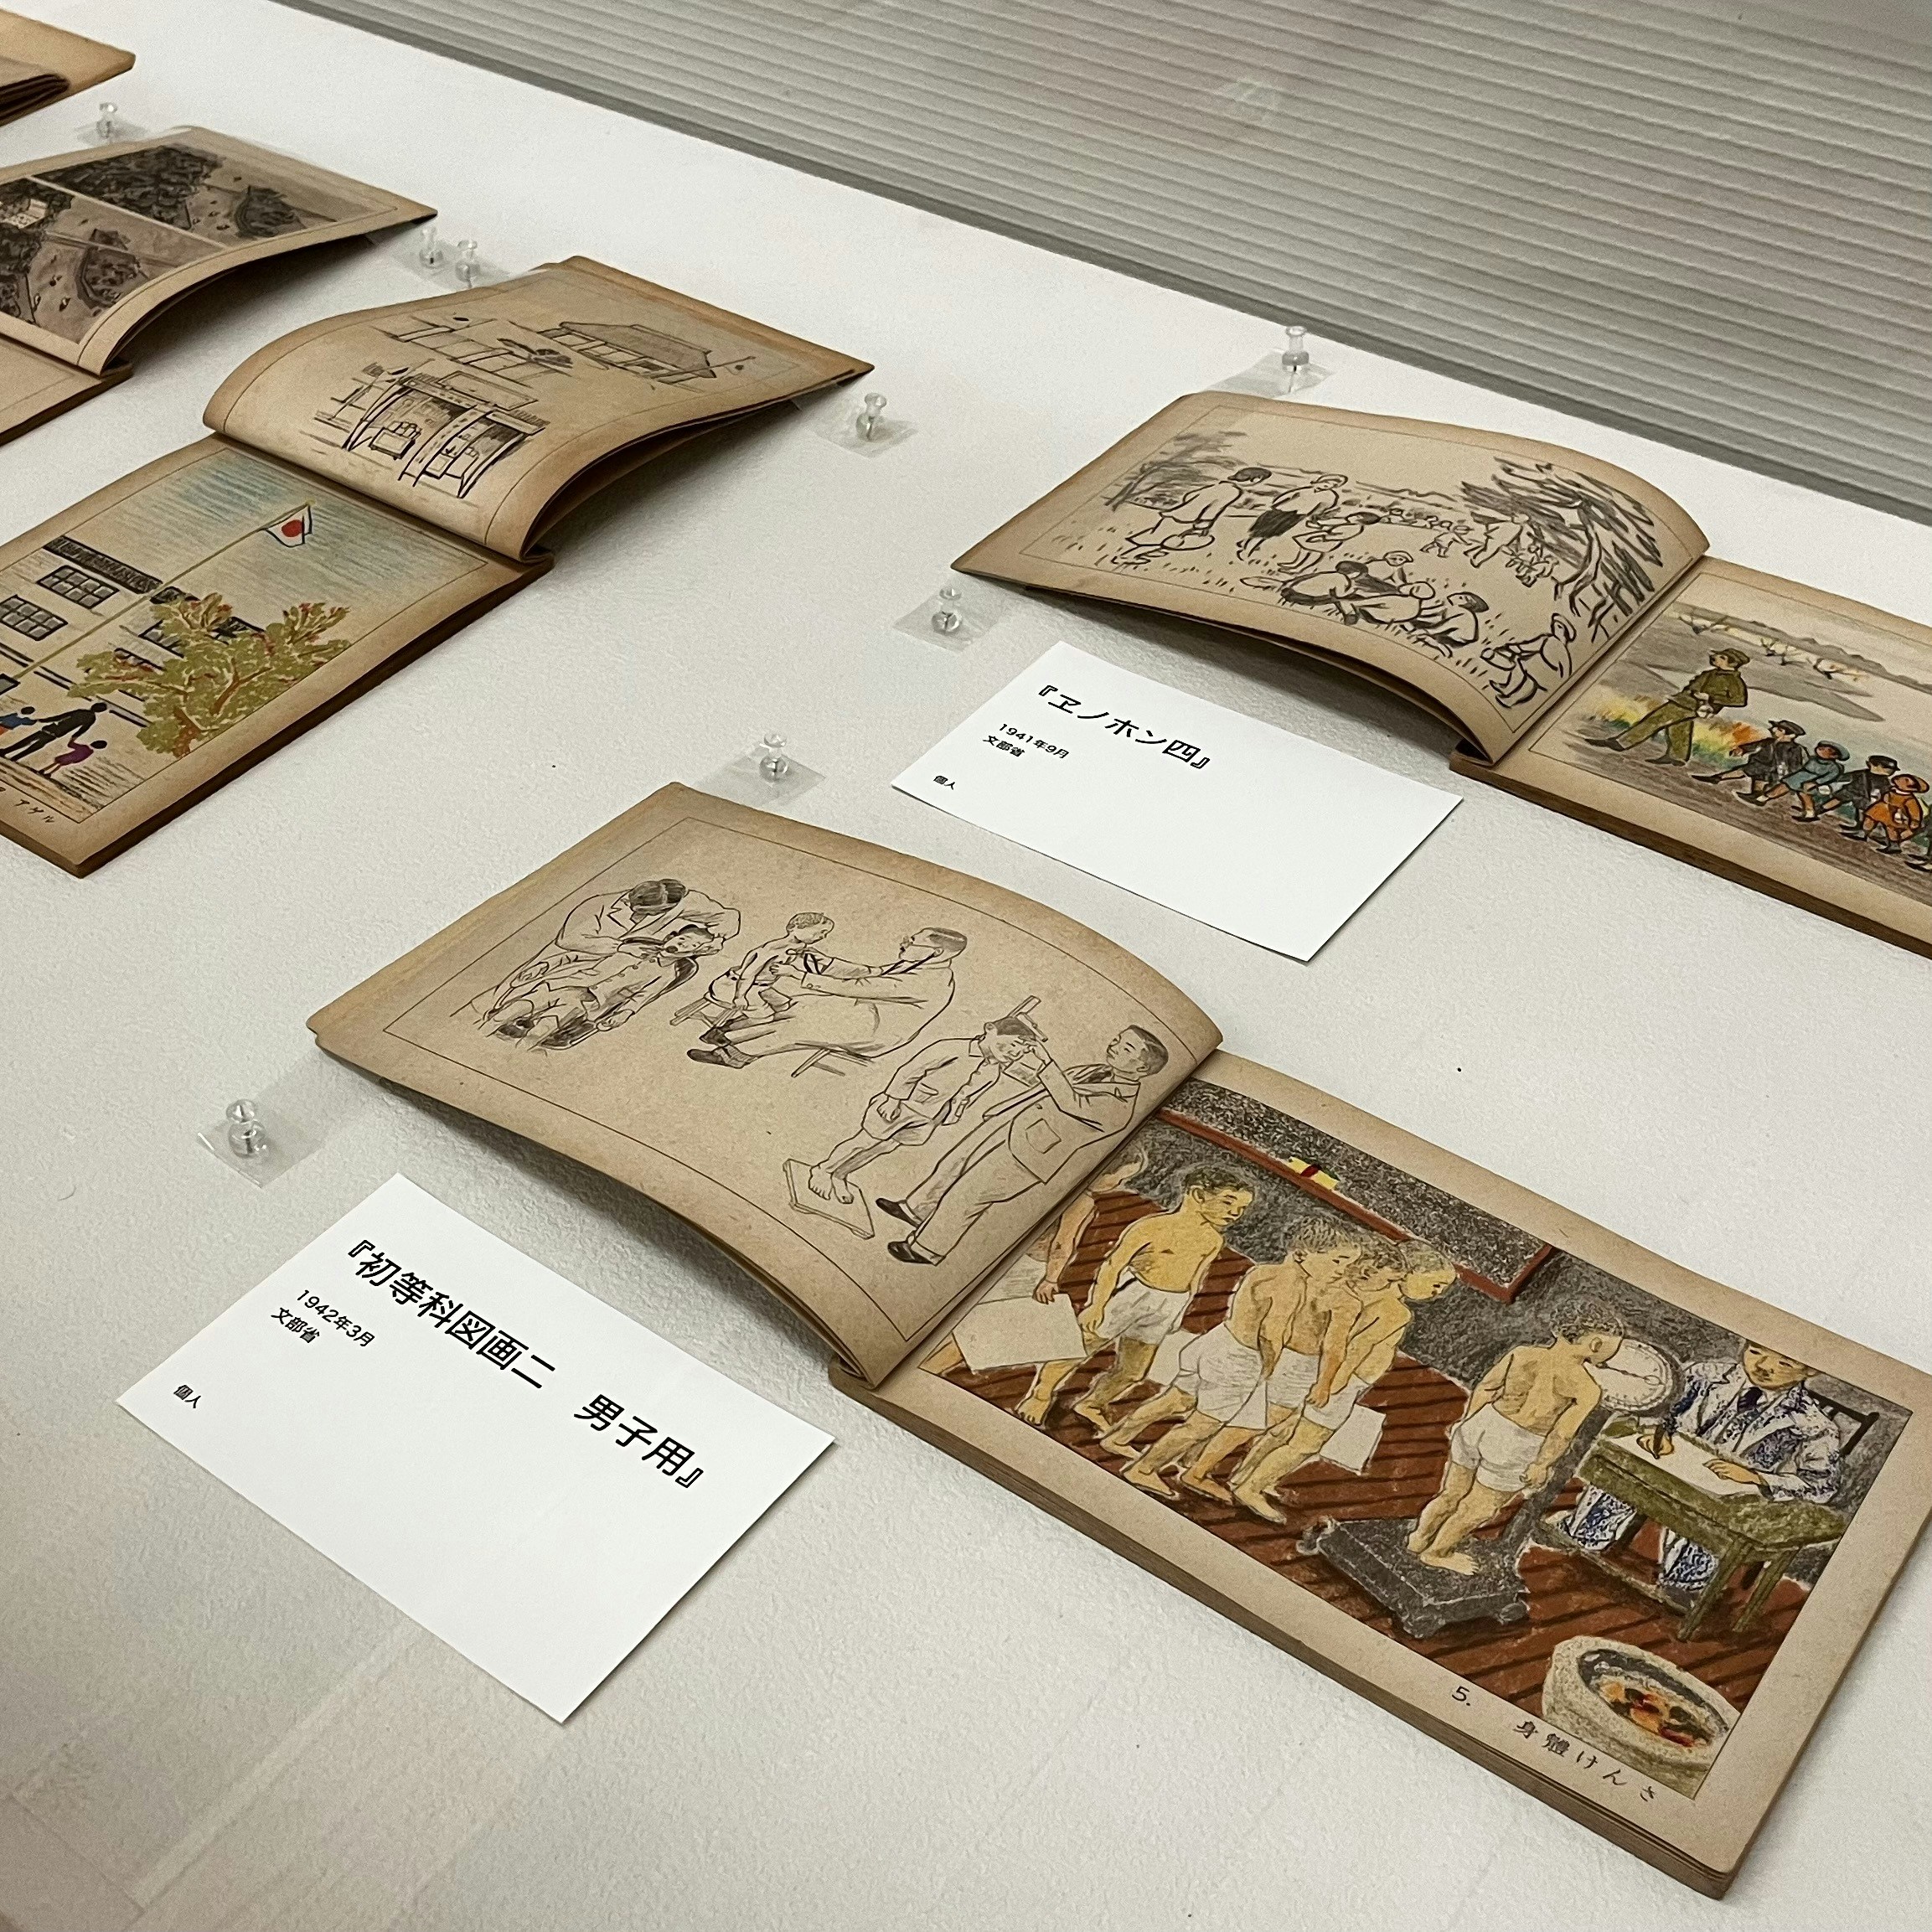 『ヱノホン四』
1941年9月
文部省
個人
『初等科図画二　男子用』
1942年3月
文部省
個人
5.　身體けんさ
アゲル